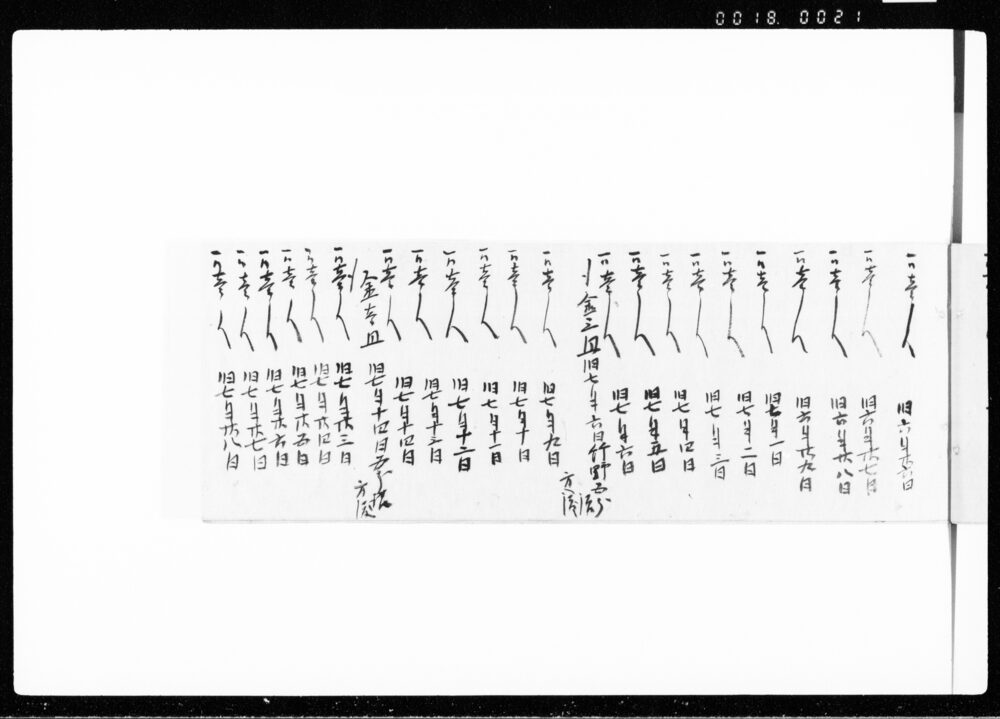 0018. 0021
一同壱人 旧六月廿六日
一同壱人 旧六月廿七日
一同壱人 旧六月廿八日
一同壱人 旧六月廿九日
一同壱人 旧七月一日
一同壱人 旧七月二日
一同壱人 旧七月三日
一同壱人 旧七月四日
一同壱人 旧七月五日
一同壱人 旧七月六日
金三円旧七月六日竹野
方渡
一同壱人 旧七月九日
一同壱人 旧七月十日
一同壱人 旧七月十一日
一同壱人 旧七月十二日
一同壱人 旧七月十三日
一同壱人 旧七月十四日
金壱円 旧七月十四日
方渡
一同壱人 旧七月廿三日
一同壱人 旧七月廿四日
一同壱人 旧七月廿五日
一同壱人 旧七月廿六日
一同壱人 旧七月廿七日
一同壱人 旧七月廿八日